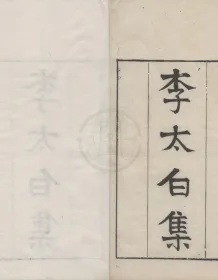 李太白集